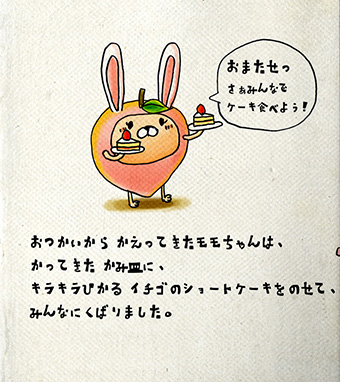 おまたせっ
さぁみんなで
ケーキ食べよう!
おつかいから かえってきたモモちゃんは、
かってきた かみ皿に、
キラキラひかる イチゴのショートケーキをのせて、
みんなにくばりました。